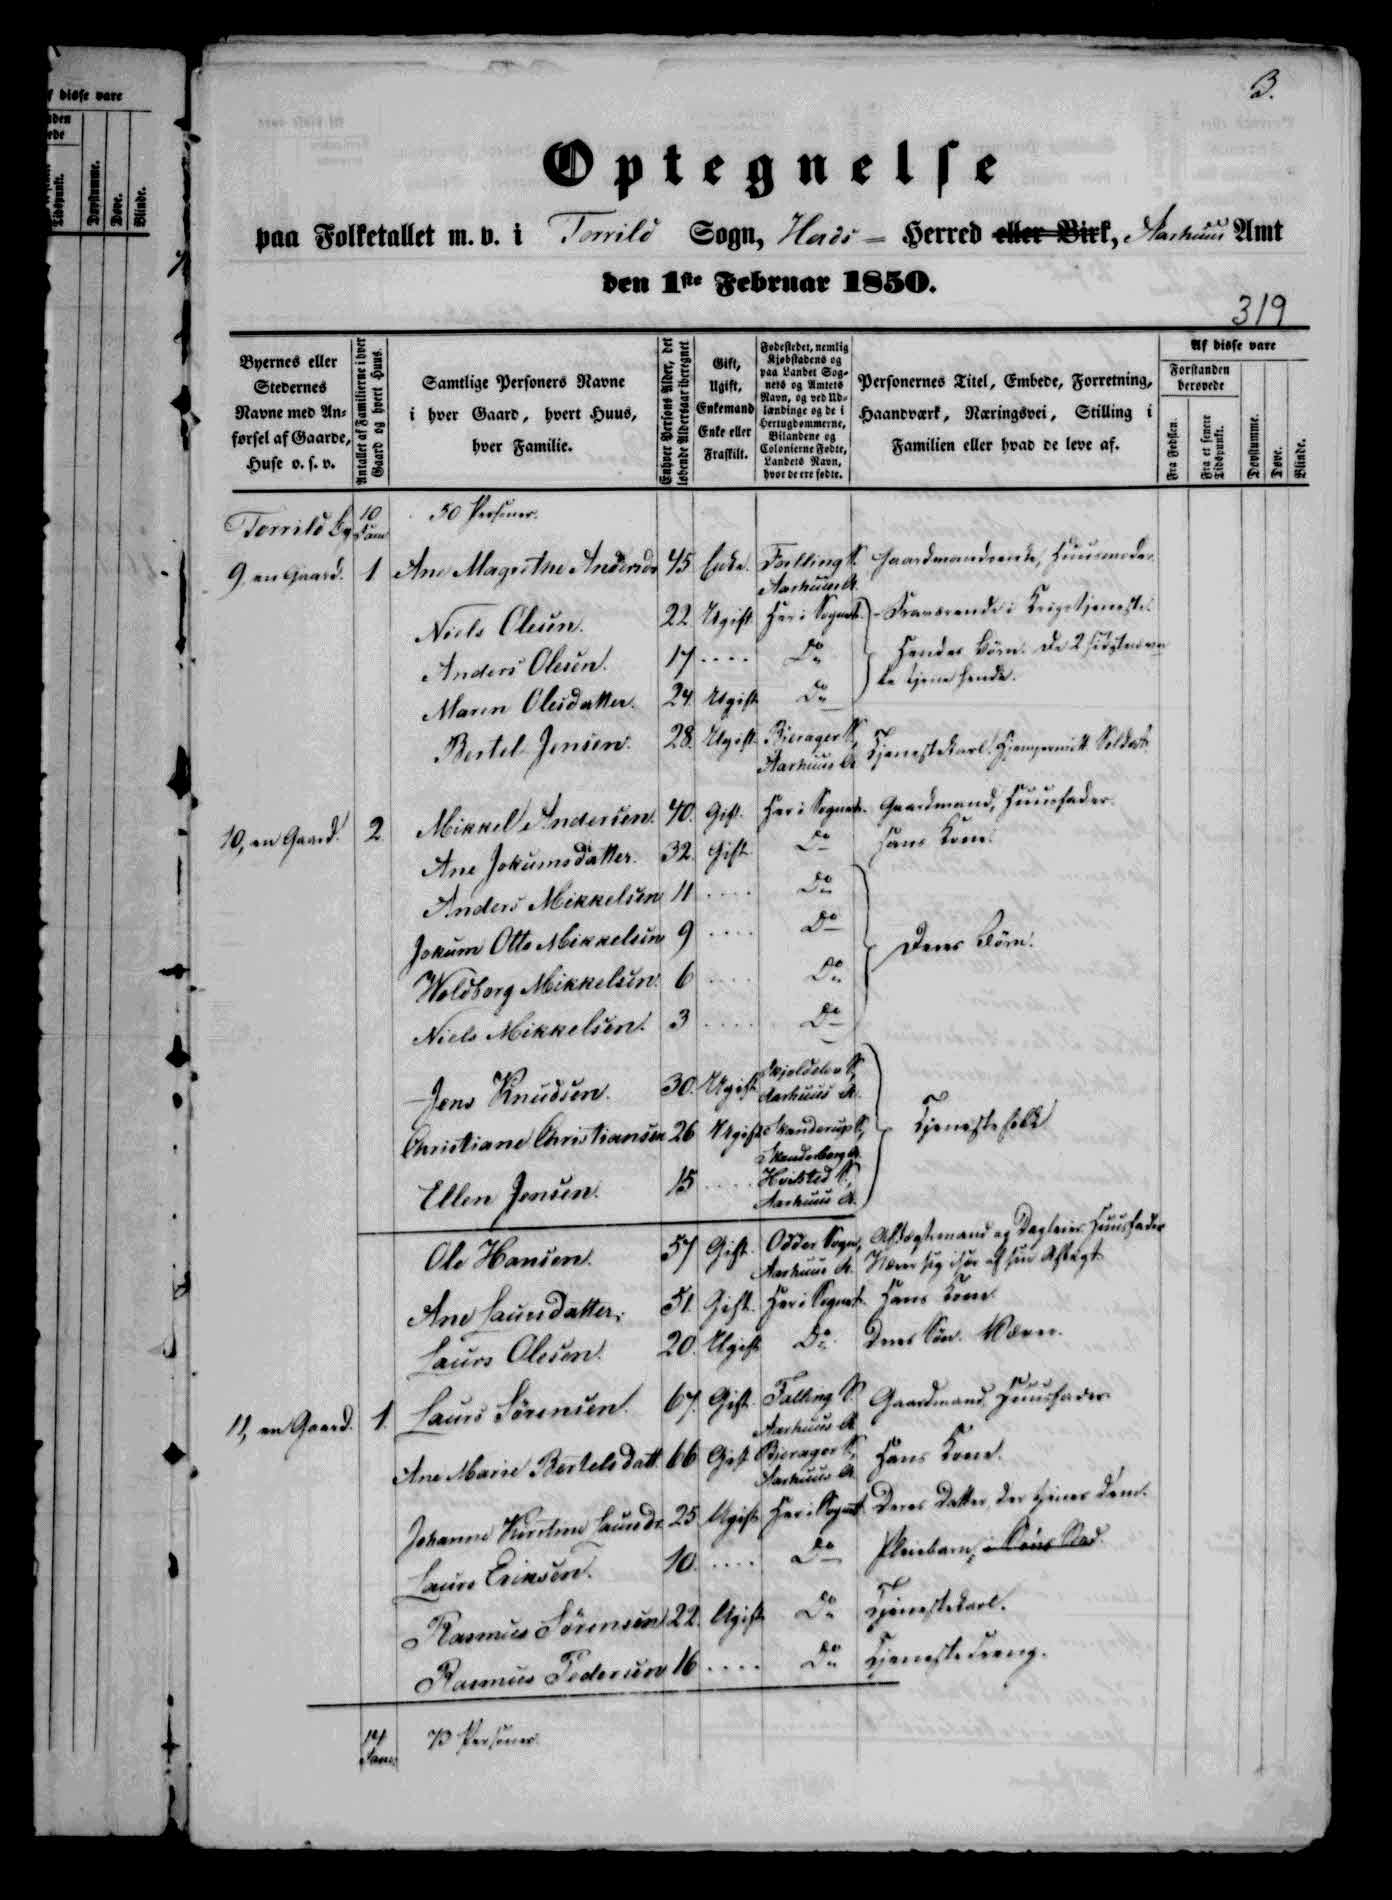 f disse vare
Tidspunkt.
Døvstumme.
Døve.
Blinde.
3.
Optegnelse
paa Folketallet m. v. i Torrild Sogn, Hads Herred eller Birk, Aarhuus Amt
den 1ste Februar 1850.
319
Byernes eller Stedernes Navne med Anførsel af Gaarde, Huse o. s. v.
Antallet af Familierne i hver Gaard og hvert Huus.
Samtlige Personers Navne i hver Gaard, hvert Huus, hver Familie.
Enhver Persons Alder, det løbende Aldersaar iberegnet
Gift, Ugift, Enkemand Enke eller Fraskilt.
Fødestedet, nemlig Kjøbstadens og paa Landet Sognets og Amtets Navn, og ved Udlændinge og de i Hertugdømmerne, Bilandene og Colonierne Fødte, Landets Navn, hvor de ere fødte.
Personernes Titel, Embede, Forretning, Haandværk, Næringsvei, Stilling i Familien eller hvad de leve af.
Af disse vare
Forstanden berøvede
Fra Fødslen.
Fra et senere Tidspunkt.
Døvstumme.
Døve.
Blinde.
Torrild By 10 Fam 50 Personer.
9, en Gaard. 1 Ane Magrethe Andersdr 45 Enke. Falling S. Aarhuus A. Gaardmandsenke, Huusmoder.
Niels Olesen. 22 Ugift Her i Sognet. Fraværende i Krigstjeneste.
Anders Olesen. 17 .... Do Hendes Børn. De 2 sidstnævn
Maren Olesdatter. 24 Ugift Do te tjene hende.
Bertel Jensen. 28. Ugift Bjerager S., Aarhuus A. Tjenestekarl. Hjempermit. Soldat
10, en Gaard. 2. Mikkel Andersen. 40. Gift. Her i Sognet. Gaardmand, Huusfader.
Ane Jokumsdatter. 32. Gift Do Hans Kone.
Anders Mikkelsen 11 .... Do
Jokum Otto Mikkelsen 9 .... Do Deres Børn.
Woldborg Mikkelsen. 6 .... Do
Niels Mikkelsen. 3 .... Do
Jens Knudsen. 30. Ugift Skjoldelev S., Aarhuus A.
Christiane Christiansen 26 Ugift Skanderup S., Skanderborg A. Tjenestefolk
Ellen Jensen. 15 .... Hvilsted S., Aarhuus A.
Ole Hansen. 57 Gift. Odder Sogn, Aarhuus A. Aftægtsmand og Dagleier Huusfader
Nærer sig især af sin Aftægt.
Ane Laursdatter. 51. Gift. Her i Sognet. Hans Kone
Laurs Olesen. 20. Ugift Do Deres Søn.
11, en Gaard. 1. Laurs Sørensen. 67. Gift. Falling S. Aarhuus A. Gaardmand, Huusfader.
Ane Marie Bertelsdatt. 66 Gift Bjerager S., Aarhuus A. Hans Kone.
Johanne Kirstine Laursdr. 25 Ugift Her i Sognet Deres Datter, der tjener dem.
Laurs Eriksen. 10. .... Do Pleiebarn, i Søns Sted.
Rasmus Sørensen 22. Ugift Do Tjenestekarl.
Rasmus Pedersen 16 .... Do Tjenestedreng.
14 Fam. 73 Personer.